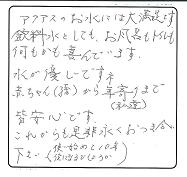 アクアスのお水には大満足す
飲料水としても、お風呂もトイレも
何もかも喜んでいます。
水が優しいですネ
赤ちゃん(孫)から年寄りまで
(私達)
皆安心です。
これからも是非永くおつき合い
下さい